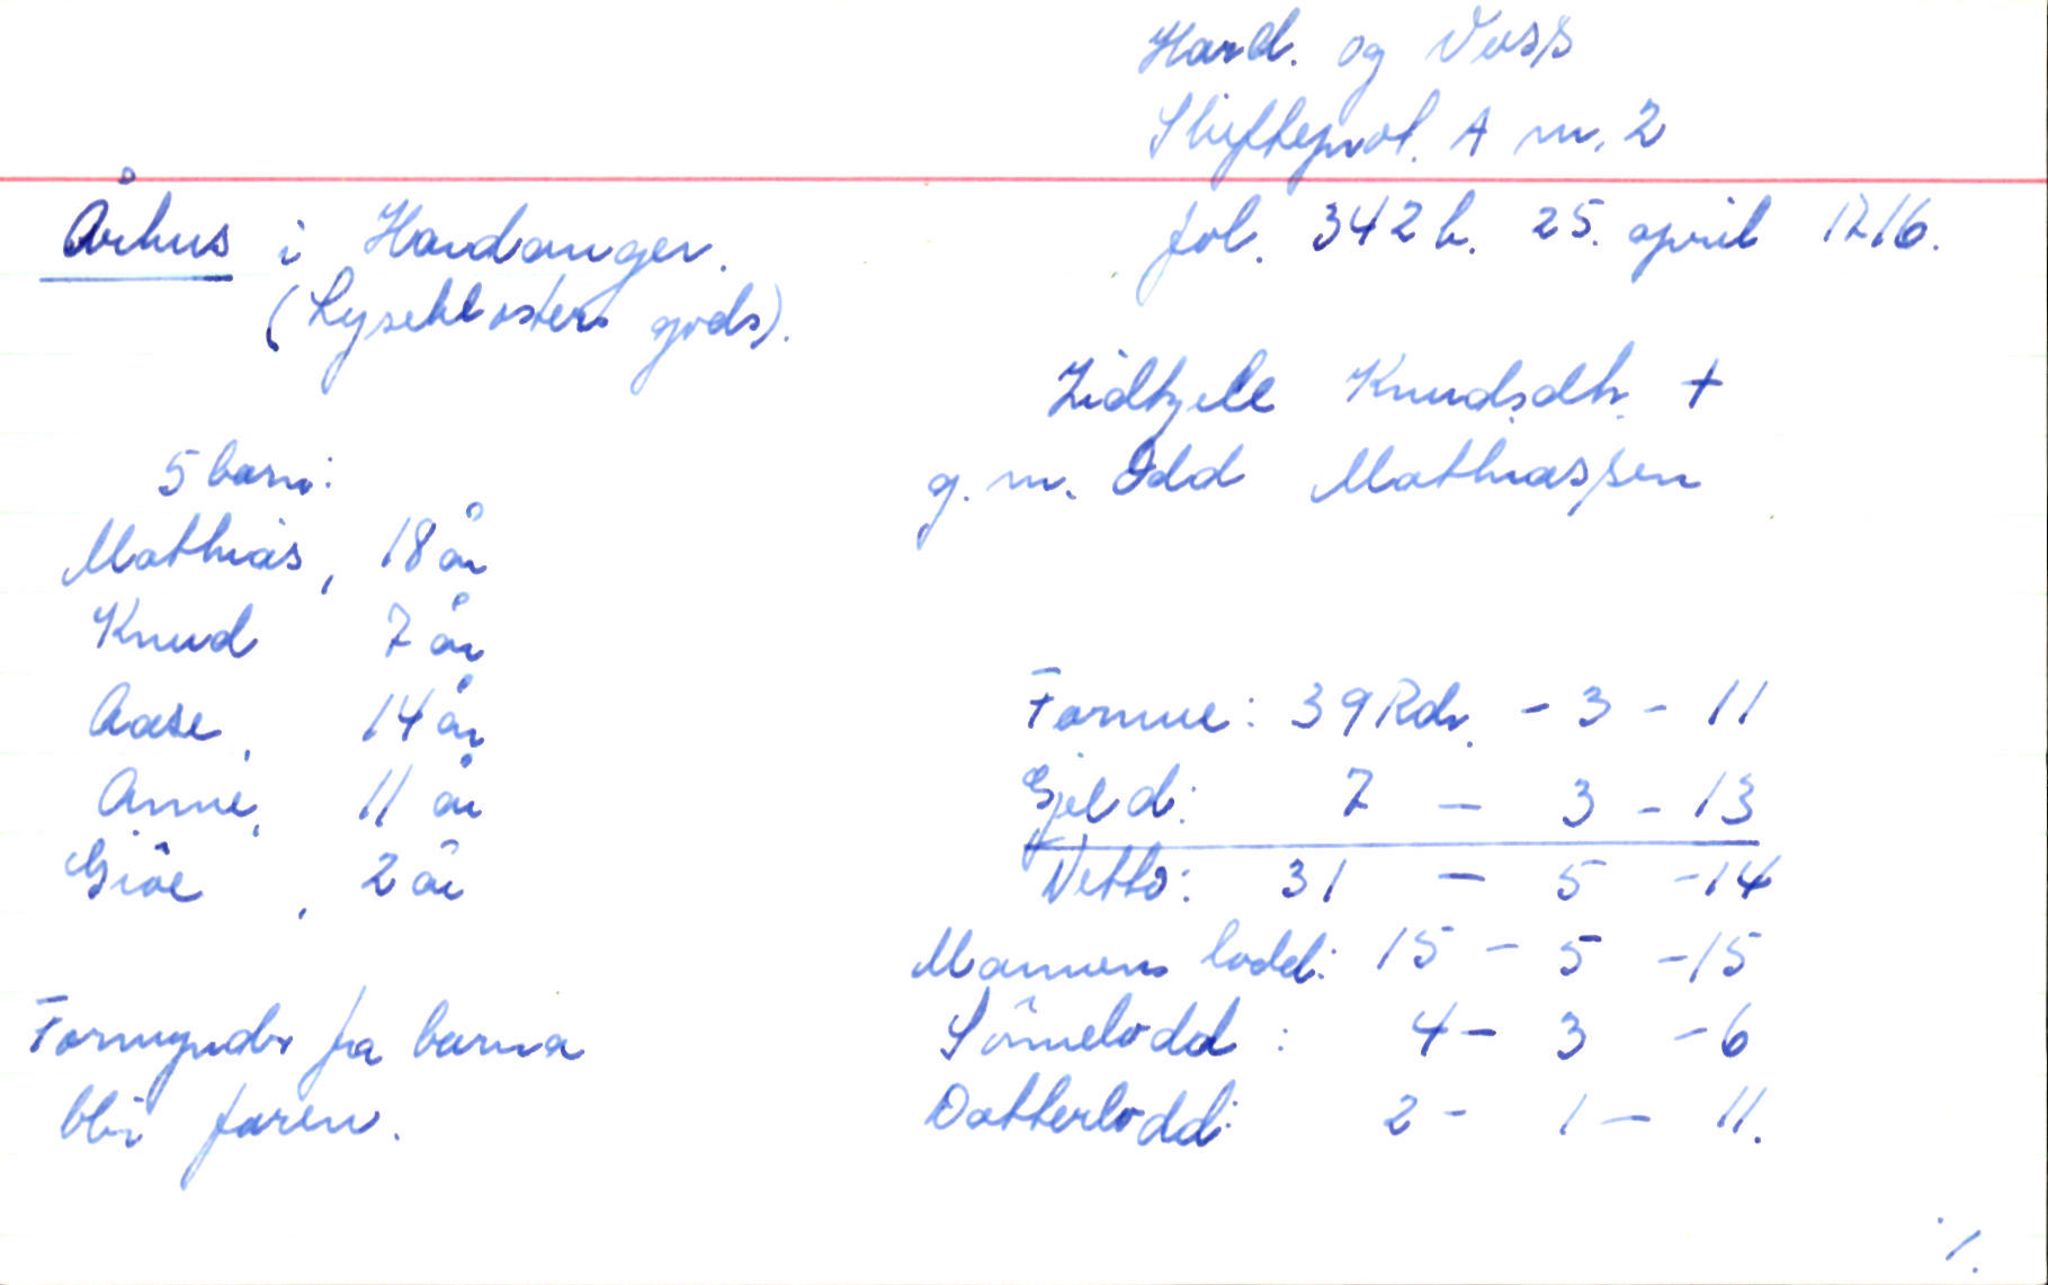 Hard. og Voss
Skifteprot. A nr. 2
fol. 342 b. 25. april 1716.
Århus i Hardanger.
(Lyseklosters gods).
Zidtzele Knudsdtr. +
g. m. Odd Mathiassen
5 barn:
Mathias, 18 år
Knud 7 år
Aase, 14 år
Anne, 11 år
Giöe, 2 år
Formynder for barna
blir faren.
Formue: 39 Rdr. - 3 - 11
Gjeld: 7 - 3 - 13
Netto: 31 - 5 - 14
Mannens lodd: 15 - 5 - 15
Sönnelodd: 4 - 3 - 6
Datterlodd: 2 - 1 - 11.